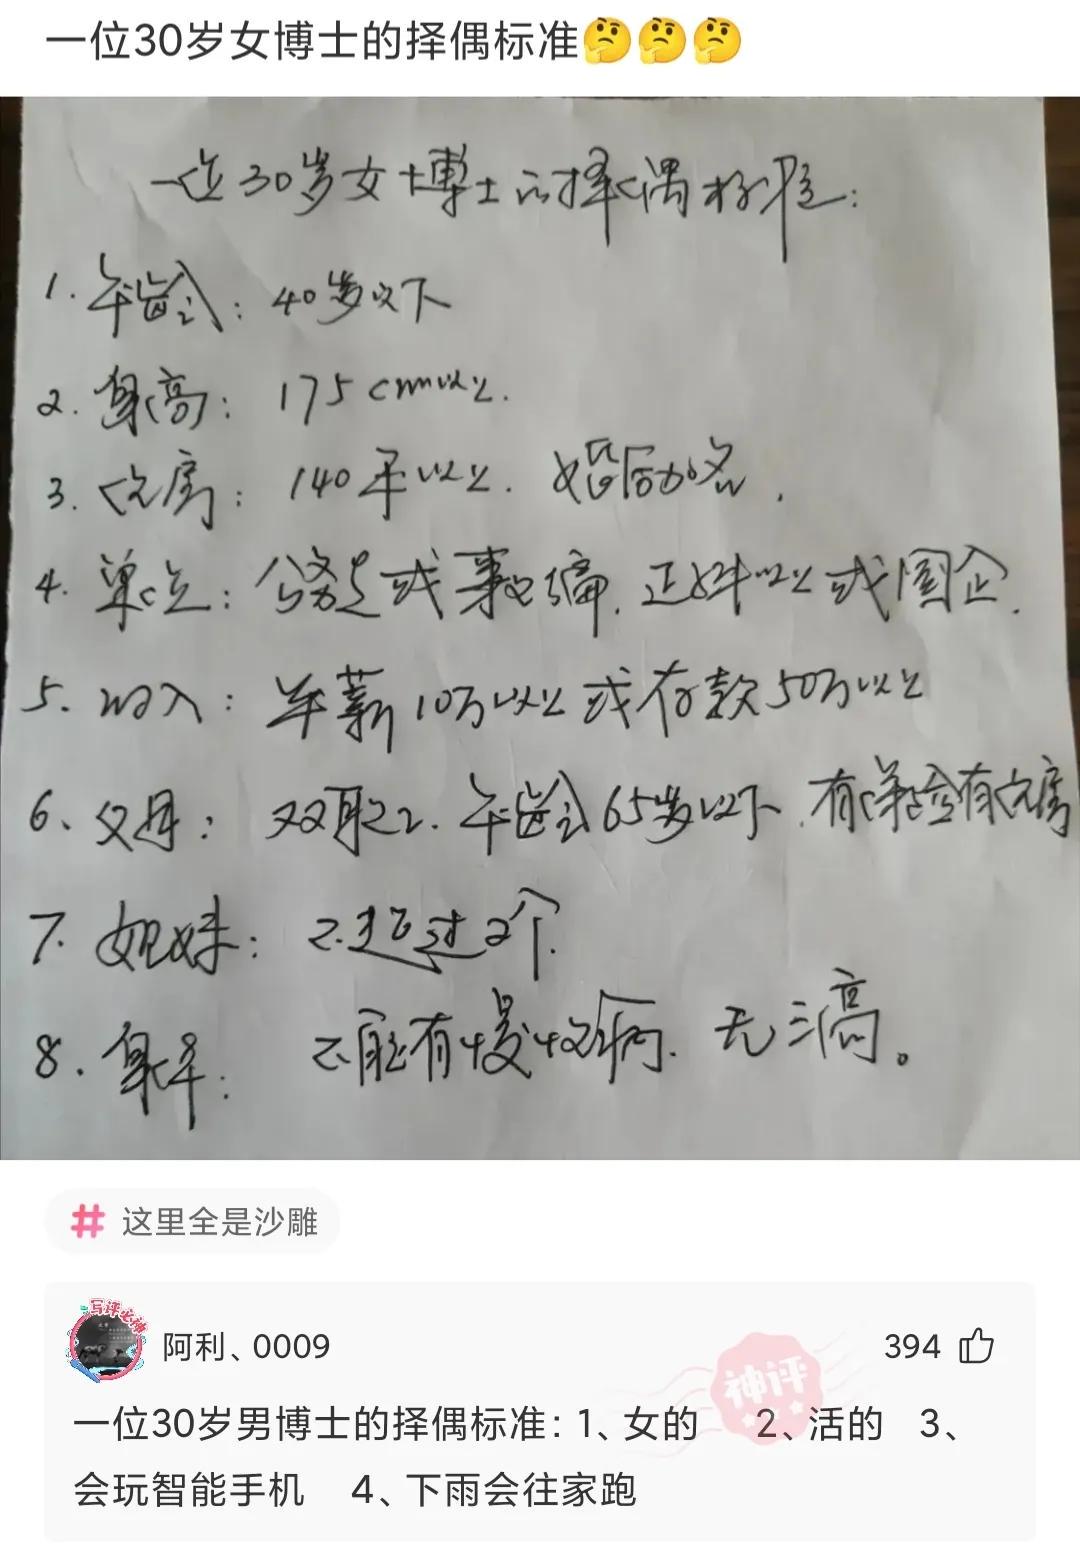 一位30岁女博士的择偶标准🤔🤔🤔
一位30岁女博士的择偶标准:
1. 年龄: 40岁以下
2. 身高: 175cm以上.
3. 住房: 140平以上. 婚后加名.
4. 单位: 公务员或事业编. 正科以上或国企.
5. 收入: 年薪10万以上或存款50万以上
6、父母: 双职工. 年龄65岁以下. 有保险有住房
7. 姐妹: 不超过2个.
8. 身体: 不能有慢性病. 无三高。
# 这里全是沙雕
写评必神
阿利、0009
394
神评
一位30岁男博士的择偶标准: 1、女的 2、活的 3、
会玩智能手机 4、下雨会往家跑